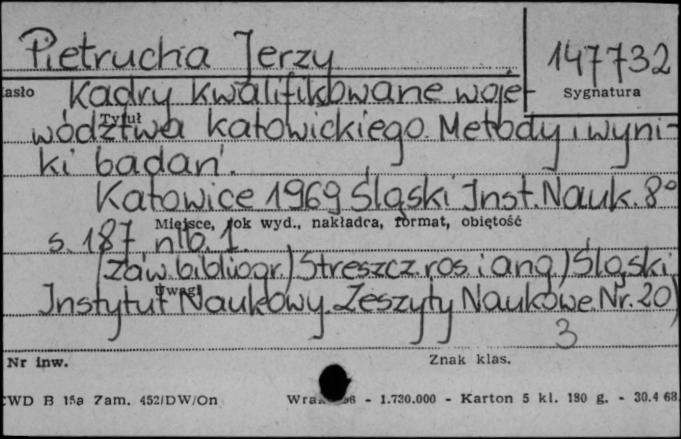 Pietrucha Jerzy
147732
asło
Sygnatura
Kadry kwalifikowane woje-
Tytuł
wództwa katowickiego. Metody i wyni-
ki badań.
Katowice 1969 Śląski Inst. Nauk. 8°
Miejsce, rok wyd., nakładca, format, objętość
s. 187 nlb. 1.
/Zaw. bibliogr./ Streszcz. ros. i ang./ Śląski
Uwagi
Instytut Naukowy. Zeszyty Naukowe. Nr. 20/
3
Nr inw.
Znak klas.
CWD B 15a Zam. 452/DW/On
68 - 1.730.000 - Karton 5 kl. 180 g. - 30.4 68.